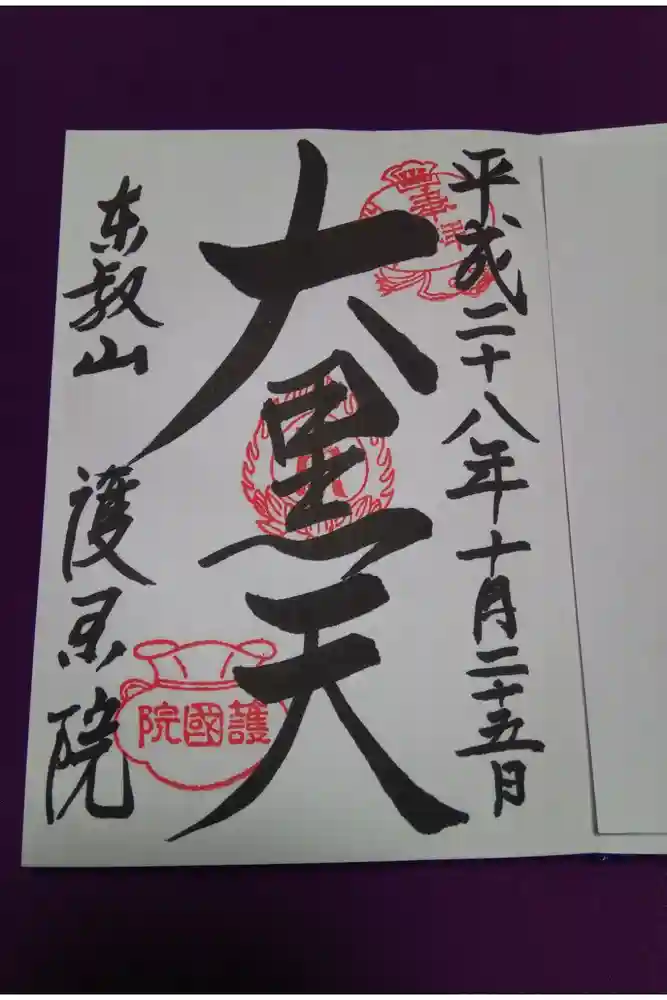 平成二十八年十月二十五日
大黒天
東叡山
護国院
護國院